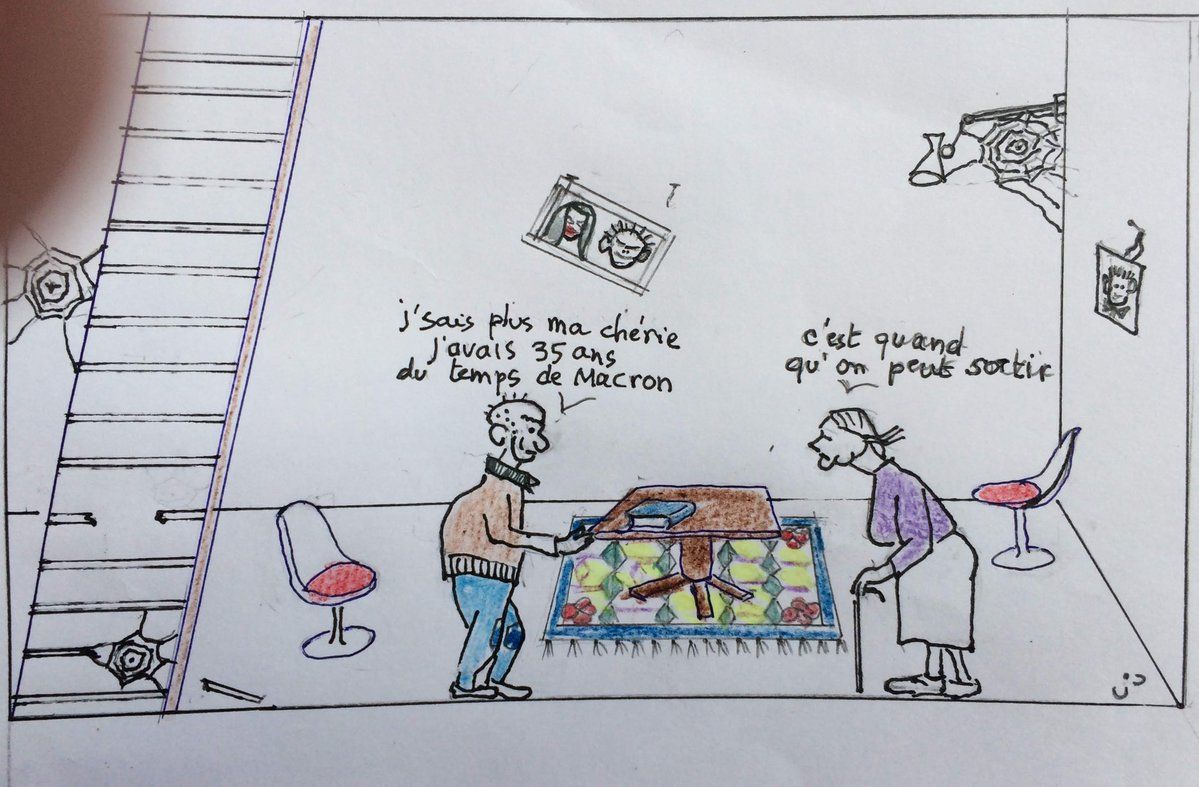 j'sais plus ma chérie
j'avais 35 ans
du temps de Macron
c'est quand
qu'on peut sortir